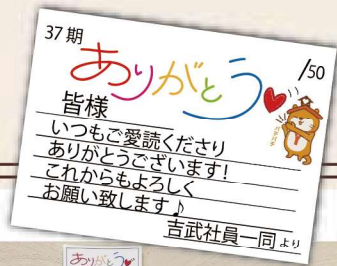 37期
ありがとう
/50
皆様
いつもご愛読くださり
ありがとうございます!
これからもよろしく
お願い致します♪
吉武社員一同より
ありがとう